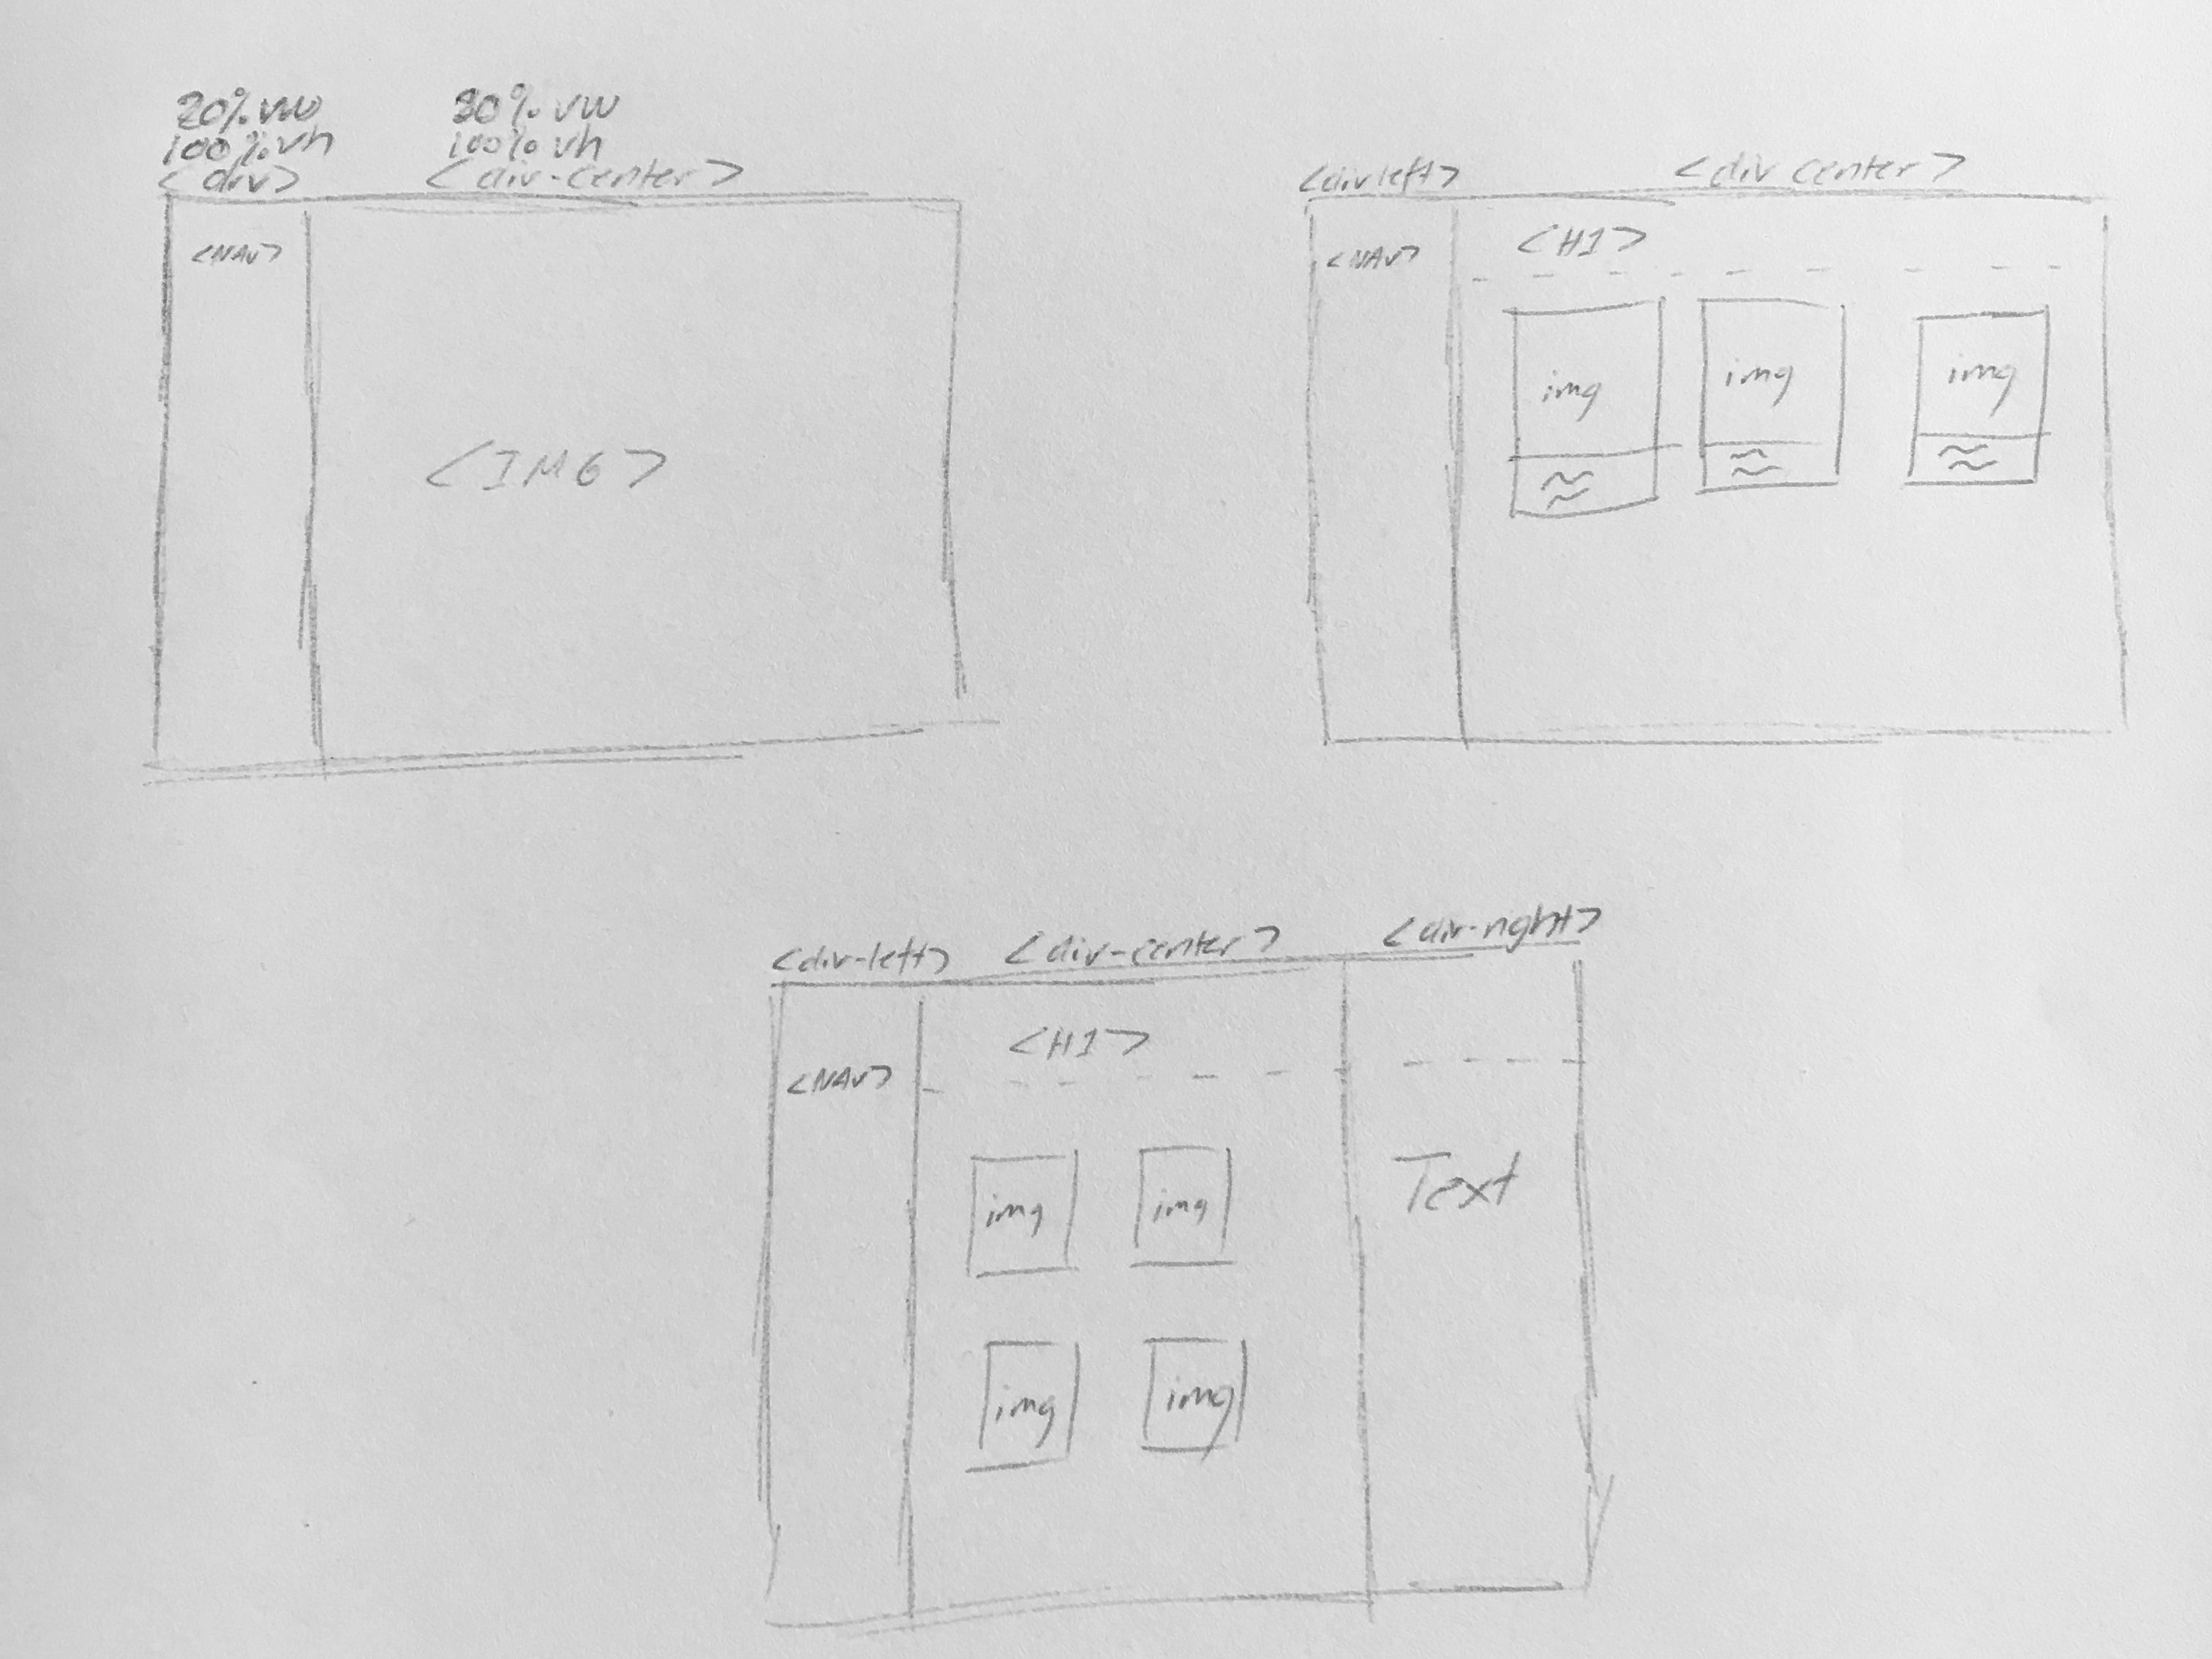 20% vw
100% vh
<div>
80% vw
100% vh
<div-center>
<NAV>
<IMG>
<div left>
<div center>
<NAV>
<H1>
img
img
img
<div-left>
<div-center>
<div-right>
<NAV>
<H1>
img
img
Text
img
img